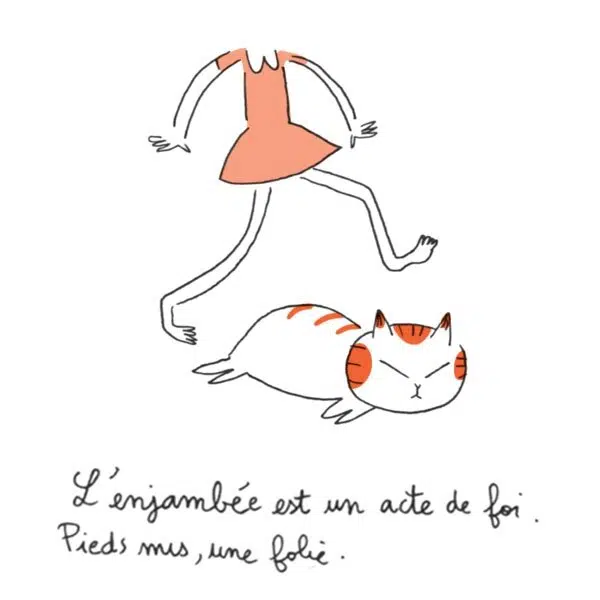 L'enjambée est un acte de foi.
Pieds nus, une folie.